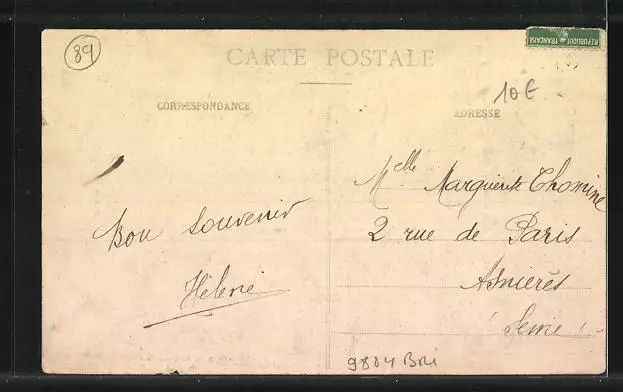 89
CARTE POSTALE
REPUBLIQUE FRANÇAISE
10€
CORRESPONDANCE
ADRESSE
Melle Marguerite Thomine
2 rue de Paris
Asnières
(Seine)
Bon souvenir
Hélène
9804 BRI